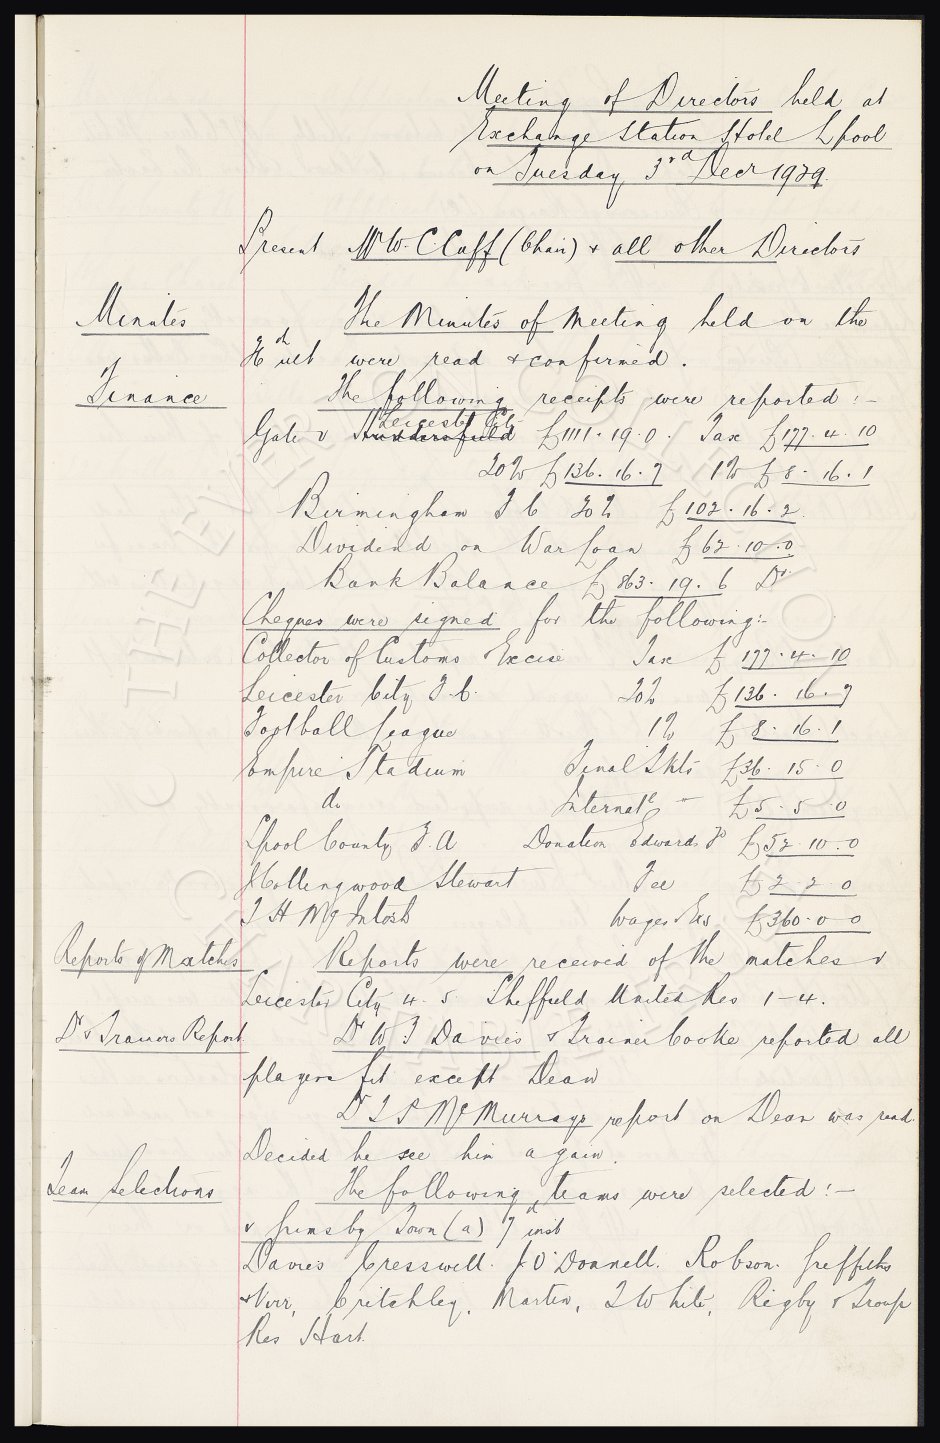 Meeting of Directors held at
Exchange Station Hotel Lpool
on Tuesday 3rd Decr 1929.
Present Mr W. C. Cuff (Chair) & all other Directors
Minutes
The Minutes of Meeting held on the
ult were read & confirmed.
Finance
The following receipts were reported :-
Leicester City
Gate v Huddersfield £1111.19.0. Tax £177.4.10
20% £136.16.7 1% £8.16.1
Birmingham F C 20% £102.16.2.
Dividend on War Loan £62.10.0
Bank Balance £863.19.6 Dr
Cheques were signed for the following:-
Collector of Customs & Excise Tax £177.4.10
Leicester City F.C. 20% £136.16.7
Football League 1% £8.16.1
Empire Stadium Final Tkts £36.15.0
do Internatl " £5.5.0
Lpool County F.A Donation Edwards £52.10.0
Hollingwood Stewart Fee £2.2.0
T H McIntosh Wages & Exs £360.0.0
Reports of Matches
Reports were received of the matches v
Leicester City 4-5 Sheffield United Res 1-4.
Dr & Trainers Report
Dr W J Davies & Trainer Cooke reported all
players fit except Dean
Dr T P McMurrays report on Dean was read.
Decided he see him again.
Team Selections
The following teams were selected :-
v Grimsby Town (a) 7th inst
Davies Cresswell. J. O'Donnell. Robson. Griffiths
& Virr, Critchley, Martin, T White, Rigby & Troup
Res Hart.
THE EVERTON COLLECTION